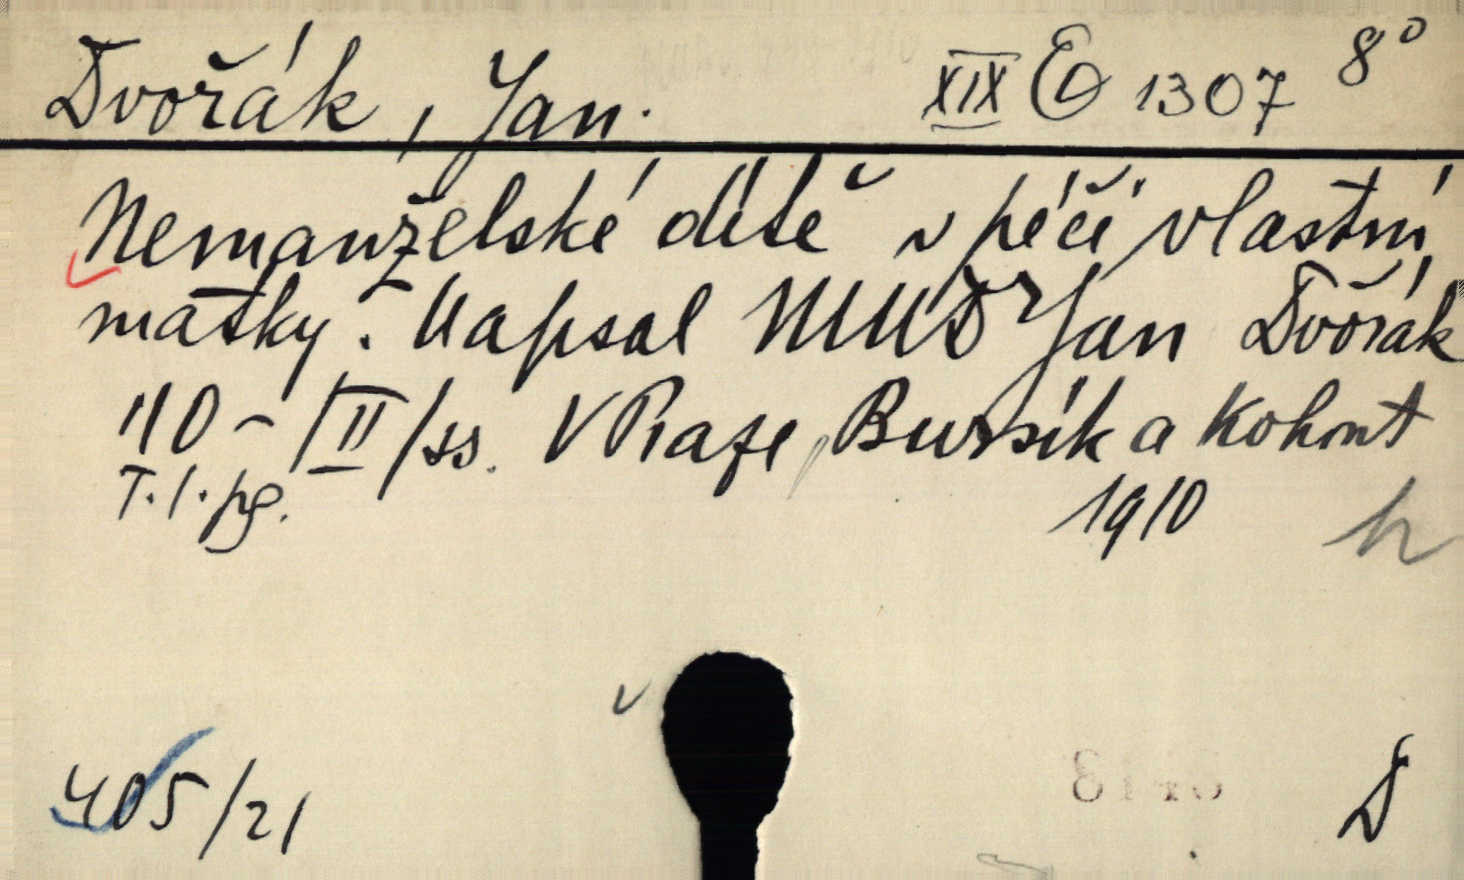 Dvořák, Jan. XIX E 1307 8°
Nemanželské dítě v péči vlastní
matky. Napsal MUDr Jan Dvořák
110 - /II/ ss. V Praze, Bursík a Kohout
T. l. pg. 1910
h
405/21 D